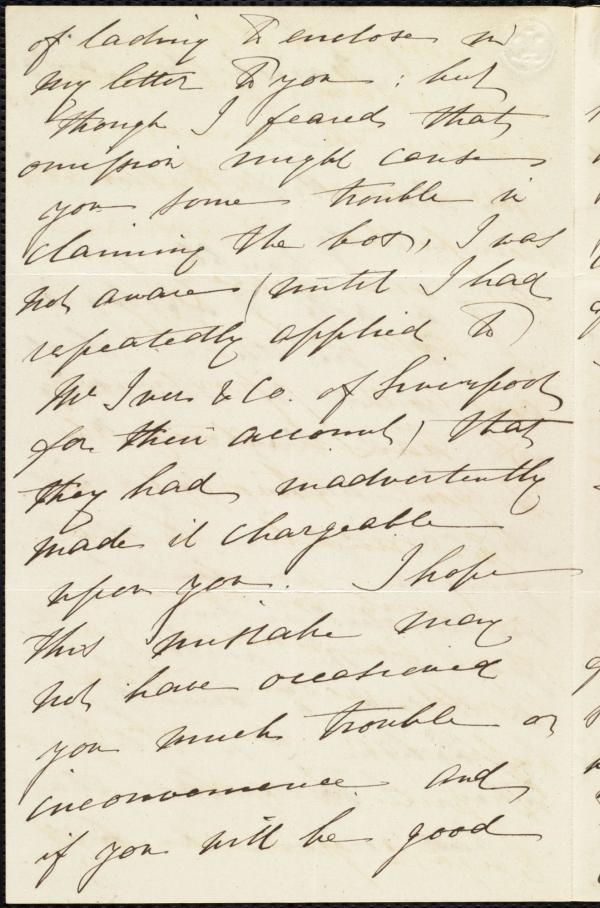 of lading to enclose in
my letter to you : but
though I feared that
omission might cause
you some trouble in
claiming the box, I was
not aware (until I had
repeatedly applied to
Mc Iver & Co. of Liverpool
for their account) that
they had inadvertently
made it chargeable
upon you. I hope
this mistake may
not have occasioned
you much trouble or
inconvenience and
if you will be good